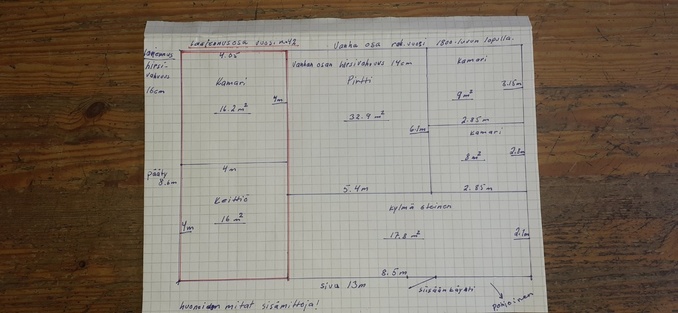 Laajennusosa vuosi n.42
Vanha osa rak.vuosi 1800-luvun lopulla.
Laajennus
hirsi-
vahvuus
16cm
4.05
Kamari
4m
16.2 m²
Vanhan osan hirsivahvuus 14cm
Pirtti
32.9 m²
6.1m
5.4m
Kamari
3.15m
9m²
2.85m
Kamari
2.8m
8m²
2.85m
pääty
8.6m
4m
Keittiö
4m
16 m²
Kylmä eteinen
17.8 m²
2.1m
8.5m
sivu 13m
sisäänkäynti
pohjoinen
huoneiden mitat sisämittoja!